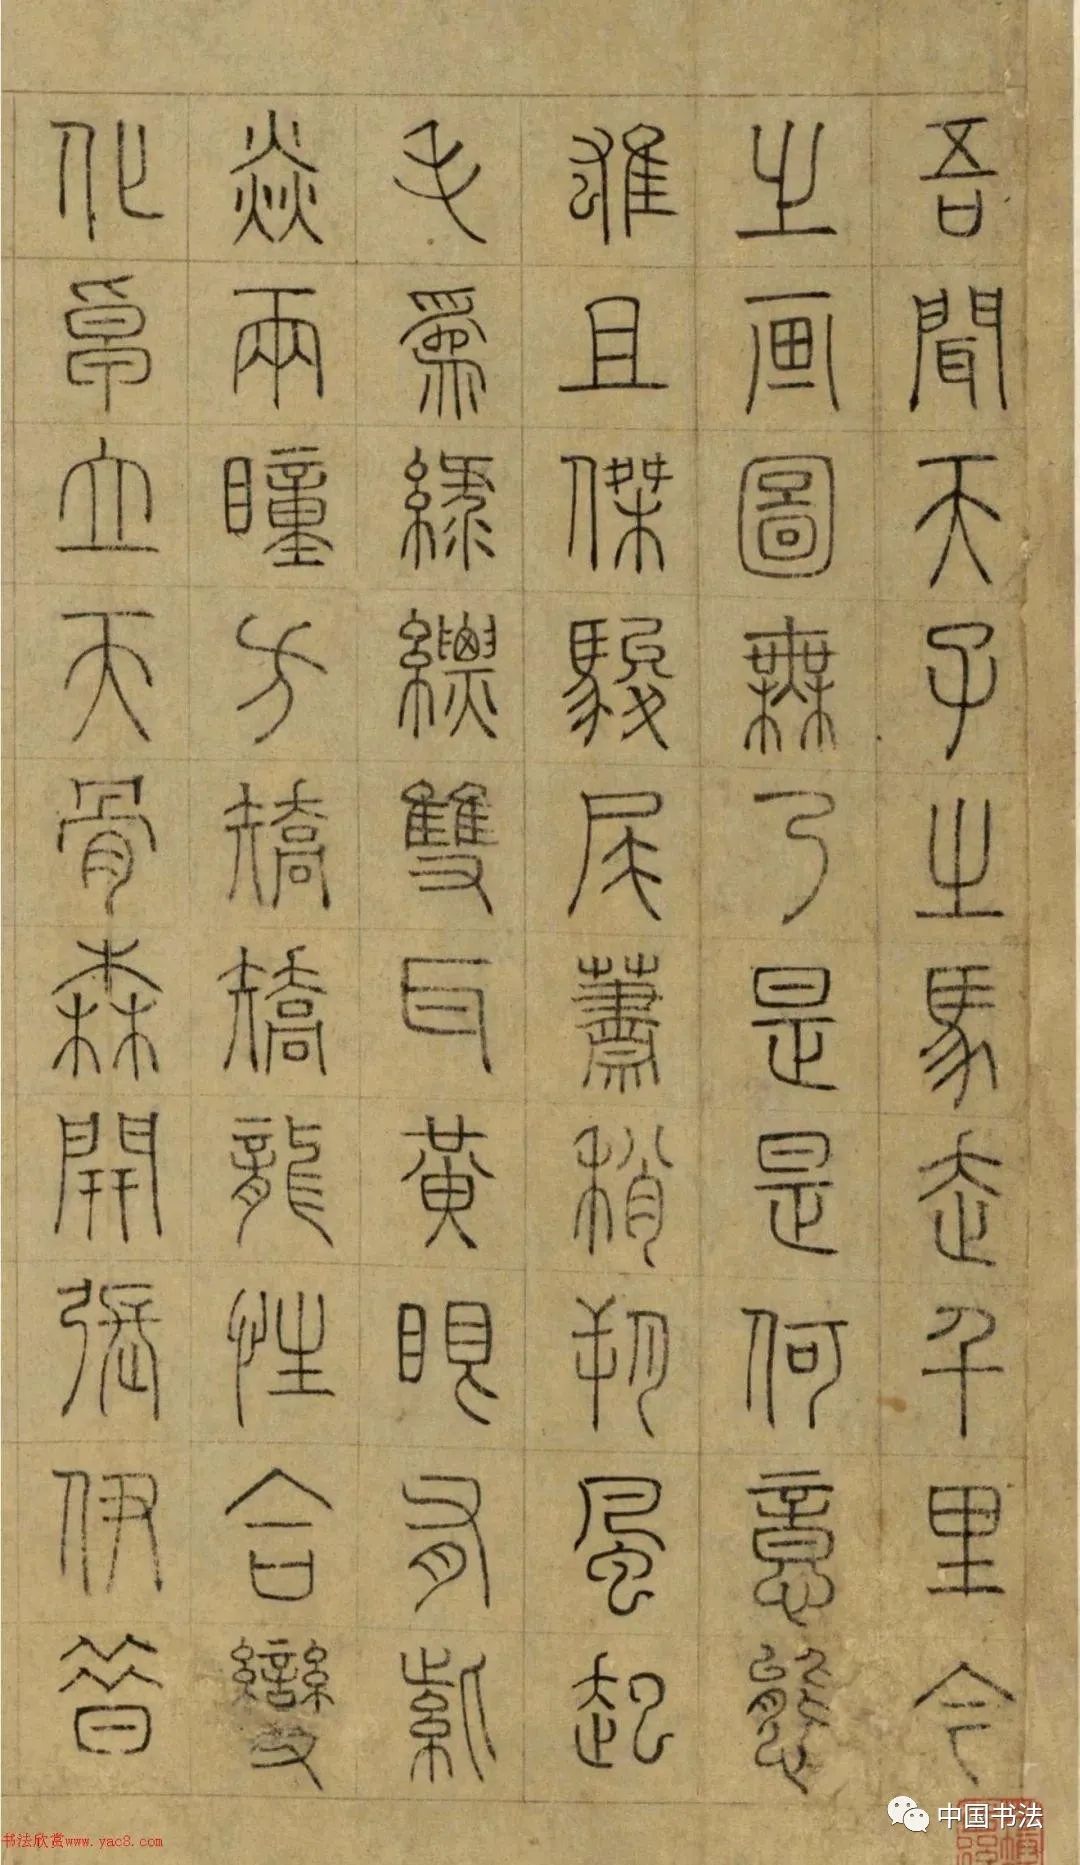 吾聞天子之馬走千里今
之畫圖無乃是是何意態
雄且傑駿尾蕭梢朔風起
毛為綠縹雙耳黃眼有紫
焱兩瞳方矯矯龍性合變
化卓立天骨森開張伊昔
中国书法
书法欣赏www.yac8.com